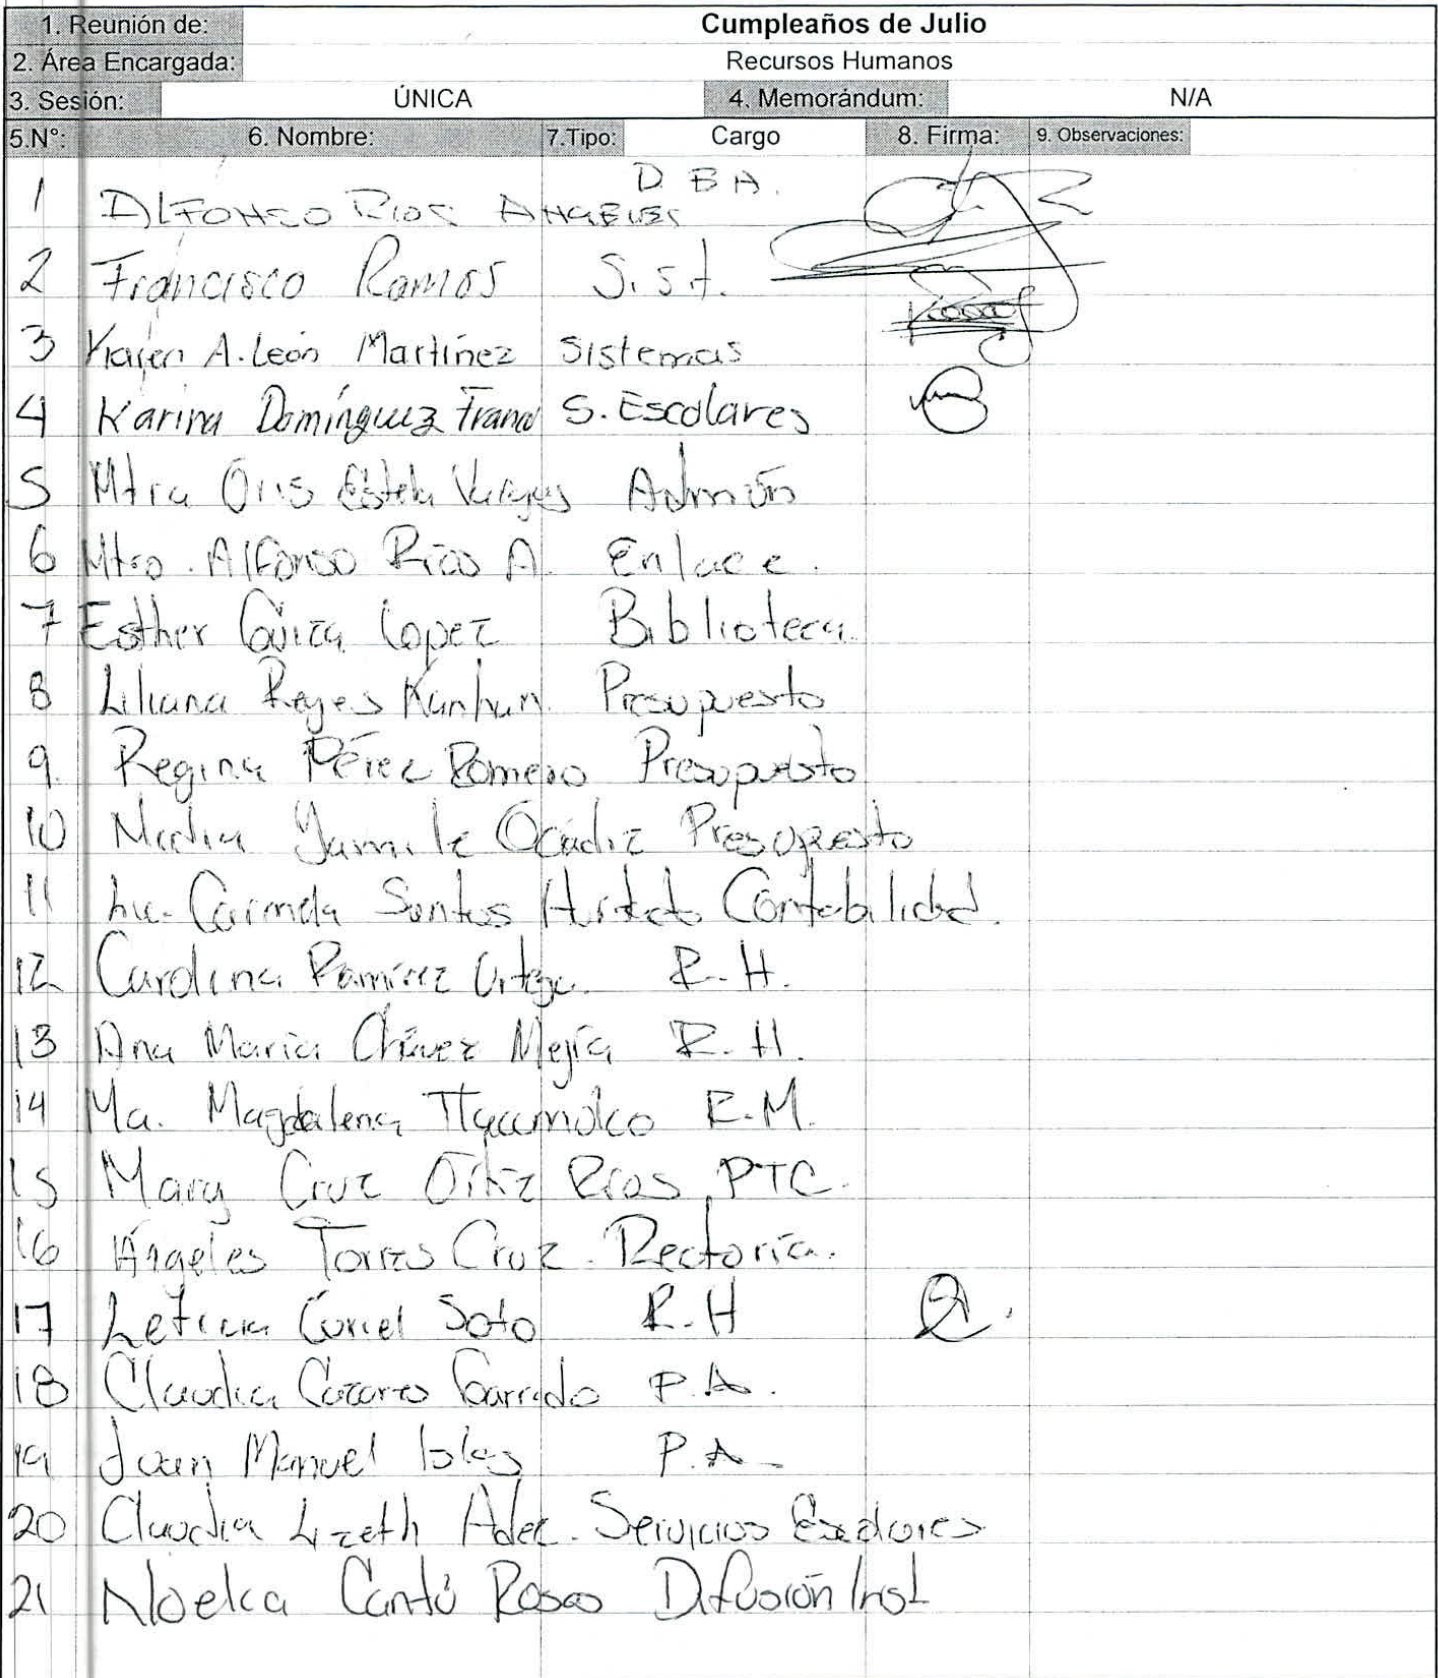 1. Reunión de: Cumpleaños de Julio
2. Área Encargada: Recursos Humanos
3. Sesión: ÚNICA 4. Memorándum: N/A
5.N°: 6. Nombre: 7.Tipo: Cargo 8. Firma: 9. Observaciones:
1 ALFONSO RIOS ANGELES D.B.A.
2 Francisco Ramos S.s.t.
3 Karen A. León Martínez Sistemas
4 Karina Domínguez Franco S. Escolares
5 Mtra Oris Estela Vargas Admón
6 Mtro. Alfonso Ríos A. Enlace.
7 Esther López Biblioteca.
8 Liliana Reyes Kanhan. Presupuesto
9. Regina Pérez Romero Presupuesto
10 Nadia Yamile Ocádiz Presupuesto
11 Lic. Carmela Santos Hurtado Contabilidad.
12 Carolina Ramírez Ortega. R.H.
13 Ana María Chávez Mejía R.H.
14 Ma. Magdalena R.M.
15 Mary Cruz Ortiz Ríos PTC.
16 Ángeles Torres Cruz. Rectoría.
17 Leticia Coriel Soto R.H
18 Claudia Cazares Garrido P.A.
19 Juan Manuel Islas P.A.
20 Claudia Lizeth Servicios Escolares
21 Noelia Cantú Rosas Difusión Inst